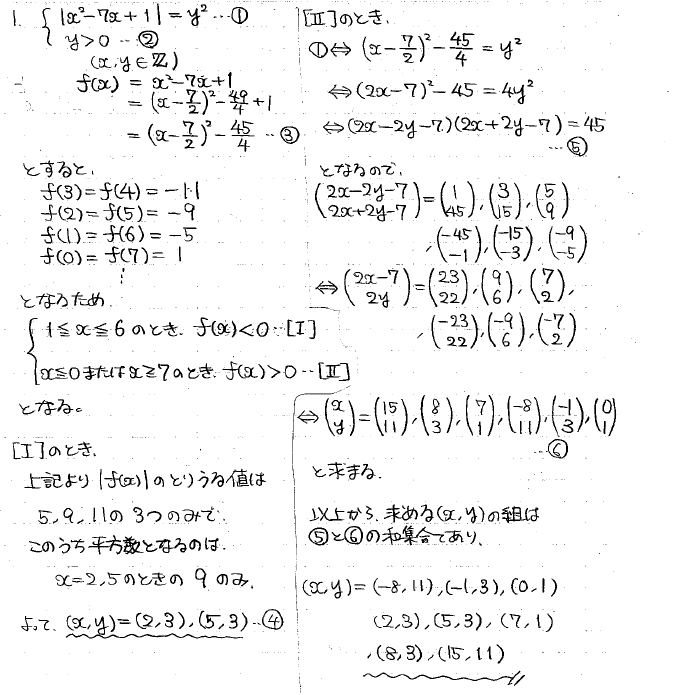 1. { |x²-7x+1| = y² …①
y>0 …②
(x,y∈ℤ)
f(x) = x²-7x+1
= (x-7/2)²-49/4+1
= (x-7/2)²-45/4 …③
とすると、
f(3)=f(4)=-11
f(2)=f(5)=-9
f(1)=f(6)=-5
f(0)=f(7)=1
⋮
となるため
{ 1≦x≦6のとき、f(x)<0…[I]
x≦0またはx≧7のとき、f(x)>0…[II]
となる。
[I]のとき、
上記より|f(x)|のとりうる値は
5,9,11の3つのみで、
このうち平方数となるのは、
x=2,5のときの9のみ。
よって、(x,y)=(2,3),(5,3)…④
[II]のとき、
①⇔(x-7/2)²-45/4=y²
⇔(2x-7)²-45=4y²
⇔(2x-2y-7)(2x+2y-7)=45
…⑤
となるので、
(2x-2y-7 / 2x+2y-7)=(1 / 45),(3 / 15),(5 / 9)
,(-45 / -1),(-15 / -3),(-9 / -5)
⇔(2x-7 / 2y)=(23 / 22),(9 / 6),(7 / 2),
,(-23 / 22),(-9 / 6),(-7 / 2)
⇔(x / y)=(15 / 11),(8 / 3),(7 / 1),(-8 / 11),(-1 / 3),(0 / 1)
…⑥
と求まる。
以上から、求める(x,y)の組は
⑤と⑥の和集合であり、
(x,y)=(-8,11),(-1,3),(0,1)
(2,3),(5,3),(7,1)
,(8,3),(15,11)